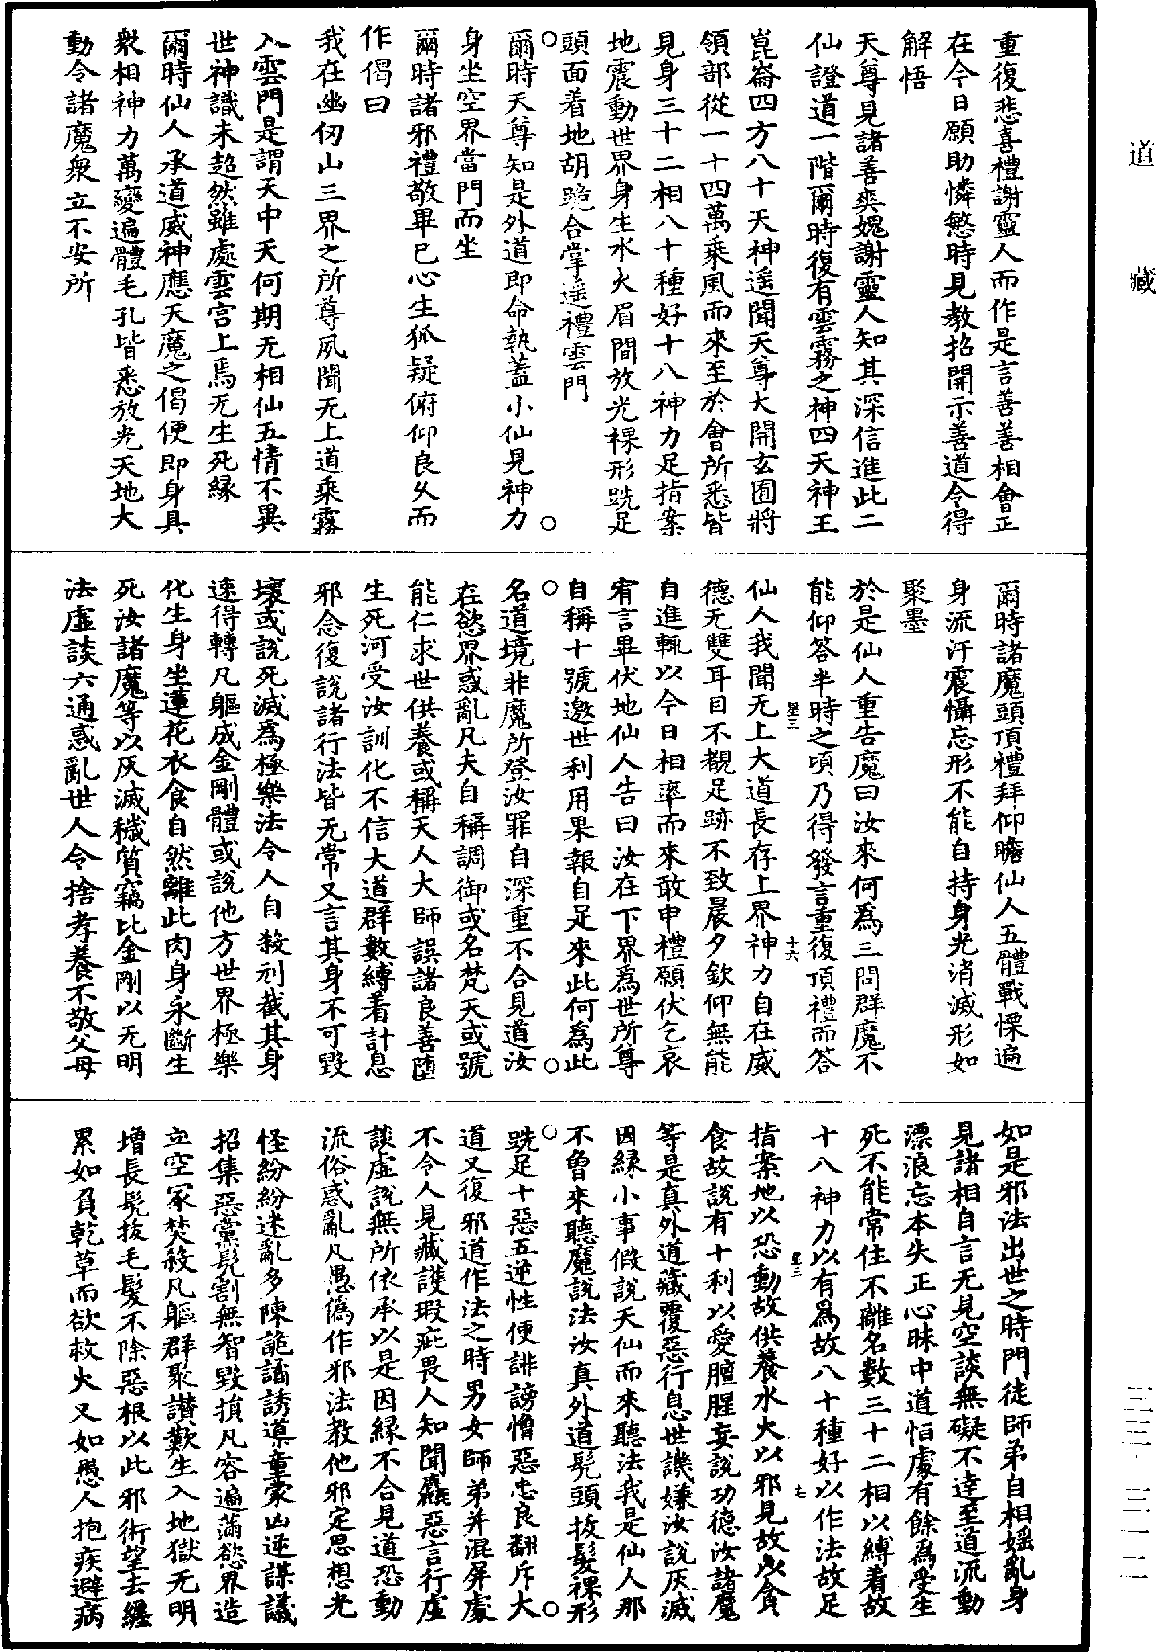 道藏
重復悲喜禮謝靈人而作是言善善相會正
在今日願助憐慜時見教招開示善道令得
解悟
天尊見諸善爽媿謝靈人知其深信進此二
仙證道一階爾時復有雲霧之神四天神王
崑崙四方八十天神遥聞天尊大開玄囿將
領部從一十四萬乘風而來至於會所悉皆
見身三十二相八十種好十八神力足指案
地震動世界身生水火眉間放光裸形跣足
頭面着地胡跪合掌遥禮雲門
爾時天尊知是外道即命執蓋小仙見神力
身坐空界當門而坐
爾時諸邪禮敬畢已心生狐疑俯仰良久而
作偈曰
我在幽仞山三界之所尊夙聞无上道乘霧
入雲門是謂天中天何期无相仙五情不異
世神識未超然雖處雲宫上焉无生死緣
爾時仙人承道威神應天魔之偈便即身具
衆相神力萬變遍體毛孔皆悉放光天地大
動令諸魔衆立不安所
爾時諸魔頭頂禮拜仰瞻仙人五體戰慄遍
身流汗震懾忘形不能自持身光消滅形如
聚墨
於是仙人重告魔曰汝來何為三問群魔不
能仰答半時之頃乃得發言重復頂禮而答
仙人我聞无上大道長存上界神力自在威
德无雙耳目不覩足跡不致晨夕欽仰無能
自進輒以今日相率而來敢申禮願伏乞哀
宥言畢伏地仙人告曰汝在下界為世所尊
自稱十號邀世利用果報自足來此何為此
名道境非魔所登汝罪自深重不合見道汝
在慾界惑亂凡夫自稱調御或名梵天或號
能仁求世供養或稱天人大師誤諸良善墮
生死河受汝訓化不信大道群數縛着計息
邪念復說諸行法皆无常又言其身不可毀
壞或說死滅為極樂法令人自殺刑截其身
速得轉凡軀成金剛體或說他方世界極樂
化生身坐蓮花衣食自然離此肉身永斷生
死汝諸魔等以灰滅穢質竊比金剛以无明
法虛談六通惑亂世人令捨孝養不敬父母
如是邪法出世之時門徒師弟自相婬亂身
見諸相自言无見空談無礙不達至道流動
漂浪忘本失正心昧中道怕處有餘為受生
死不能常住不離名數三十二相以縛着故
十八神力以有為故八十種好以作法故足
指案地以恐動故供養水火以邪見故以食
食故說有十利以愛膻腥妄說功德汝諸魔
等是真外道藏覆惡行息世譏嫌汝說灰滅
因緣小事假說天仙而來聽法我是仙人那
不魯來聽魔說法汝真外道髠頭拔髮裸形
跣足十惡五逆性便誹謗憎惡忠良翻斥大
道又復邪道作法之時男女師弟并混屏處
不令人見藏護瑕疵畏人知聞麤惡言行虛
談虛說無所依承以是因緣不合見道恐動
流俗惑亂凡愚偽作邪法教他邪定思想光
怪紛紛迷亂多陳詭譎誘導童蒙凶逆謀議
招集惡黨髠割無智毀損凡容遍滿慾界造
立空冢焚殺凡軀群聚讃歎生入地獄无明
增長髠拔毛髮不除惡根以此邪術望去纏
累如負乾草而欲救火又如愚人抱疾避病
星三
十六
星三
七
三三·三一二